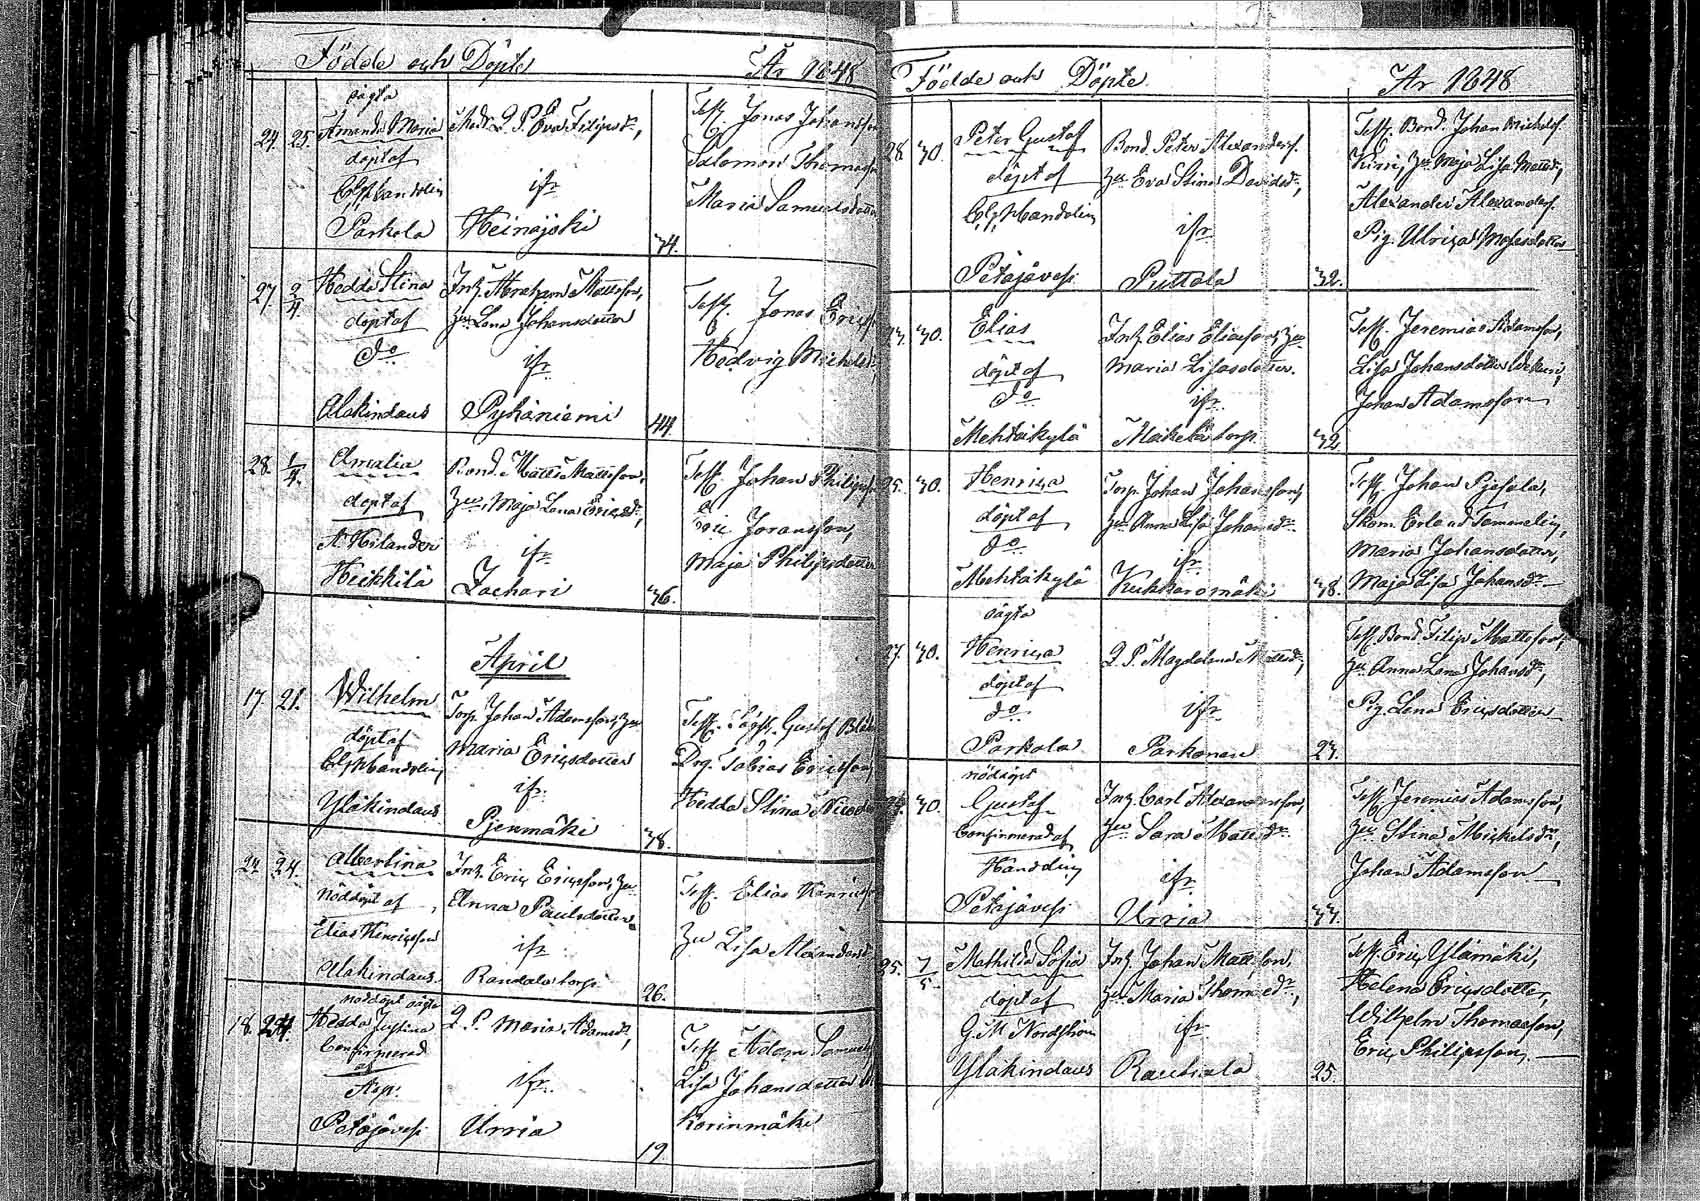 Födde och Döpte År 1848
oägta
24. 25. Amanda Maria
döpt af
Parkola
Q. P. Eva Filipsdr,
ifr
Heinäjoki
34.
Test. Jonas Johansson
Salomon Thomasson
Maria Samuelsdotter
27. 2/4. Hedda Stina
döpt af
do
Alakindaus
Inh. Abraham Mattsson,
hu Lena Johansdotter
ifr
Pyhäniemi
44.
Test. Jonas Ericss
Hedvig Michelsdr,
28. 1/4. Amalia
döpt af
A. Hilander
Heikkilä
Bond. Matts Mattsson,
hu Maja Lena Ericsdr,
ifr
Zachari
36.
Test. Johan Philipss
Eric Joransson,
Maja Philipsdotter
April
17. 21. Wilhelm
döpt af
Yläkindaus
Torp. Johan Adamsson, hu
Maria Ericsdotter
ifr
Pjenmäki
38.
Test. Gustaf
Drg. Tobias Ericsson,
Hedda Stina
22. 24. Albertina
Nöddöpt af
Elias Henricsson
Alakindaus
Inh. Eric Ericsson, hu
Anna Paulsdotter
ifr
Randala torp
26.
Test. Elias Henricss
hu Lisa Alexandersdr
nöddöpt oägta
18. 24. Hedda Justina
Confirmerad
af
Petäjävesi
Q. P. Maria Adamsdr,
ifr
Urria
19.
Test. Adam Samuels
Lisa Johansdotter
Korinmäki
Födde och Döpte År 1848
28. 30. Peter Gustaf
döpt af
Petäjävesi
Bond. Peter Alexanderss.
hu Eva Stina Davidsdr,
ifr
Puttola
32.
Test. Bond. Johan Michelss.
hu Maja Lisa Mattsdr,
Alexander Alexanderss.
Pig. Ulrica Mosesdotter
23. 30. Elias
döpt af
do
Mehtäkylä
Inh. Elias Eliasson, hu
Maria Lisasdotter
ifr
Mäkelä torp
32.
Test. Jeremias Adamsson,
Lisa Johansdotter
Johan Adamsson
25. 30. Henrica
döpt af
do
Mehtäkylä
Torp. Johan Johansson,
hu Anna Lisa Johansdr
ifr
Kukkaromäki
38.
Test. Johan
Skom. Erland Temmelin,
Maria Johansdotter,
Maja Lisa Johansdr
oägta
27. 30. Henrica
döpt af
do
Parkola
Q. P. Magdalena Mattsdr,
ifr
Parkonen
23.
Test. Bond Filip Mattsson,
hu Anna Lena Johansdr,
Pig. Lena Ericsdotter
nöddöpt
30. Gustaf
Confirmerad af
Handelin
Petäjävesi
Inh. Carl Alexandersson,
hu Sara Mattsdr
ifr
Urria
33.
Test. Jeremias Adamsson,
hu Stina Michelsdr,
Johan Adamsson
25. 7/5. Mathilda Sofia
döpt af
G. M. Nordström
Yläkindaus
Inh. Johan Mattsson,
hu Maria Thomasdr,
ifr
Rautiala
25.
Test. Eric Ylämäki,
Helena Ericsdotter,
Wilhelm Thomasson,
Eric Philipsson